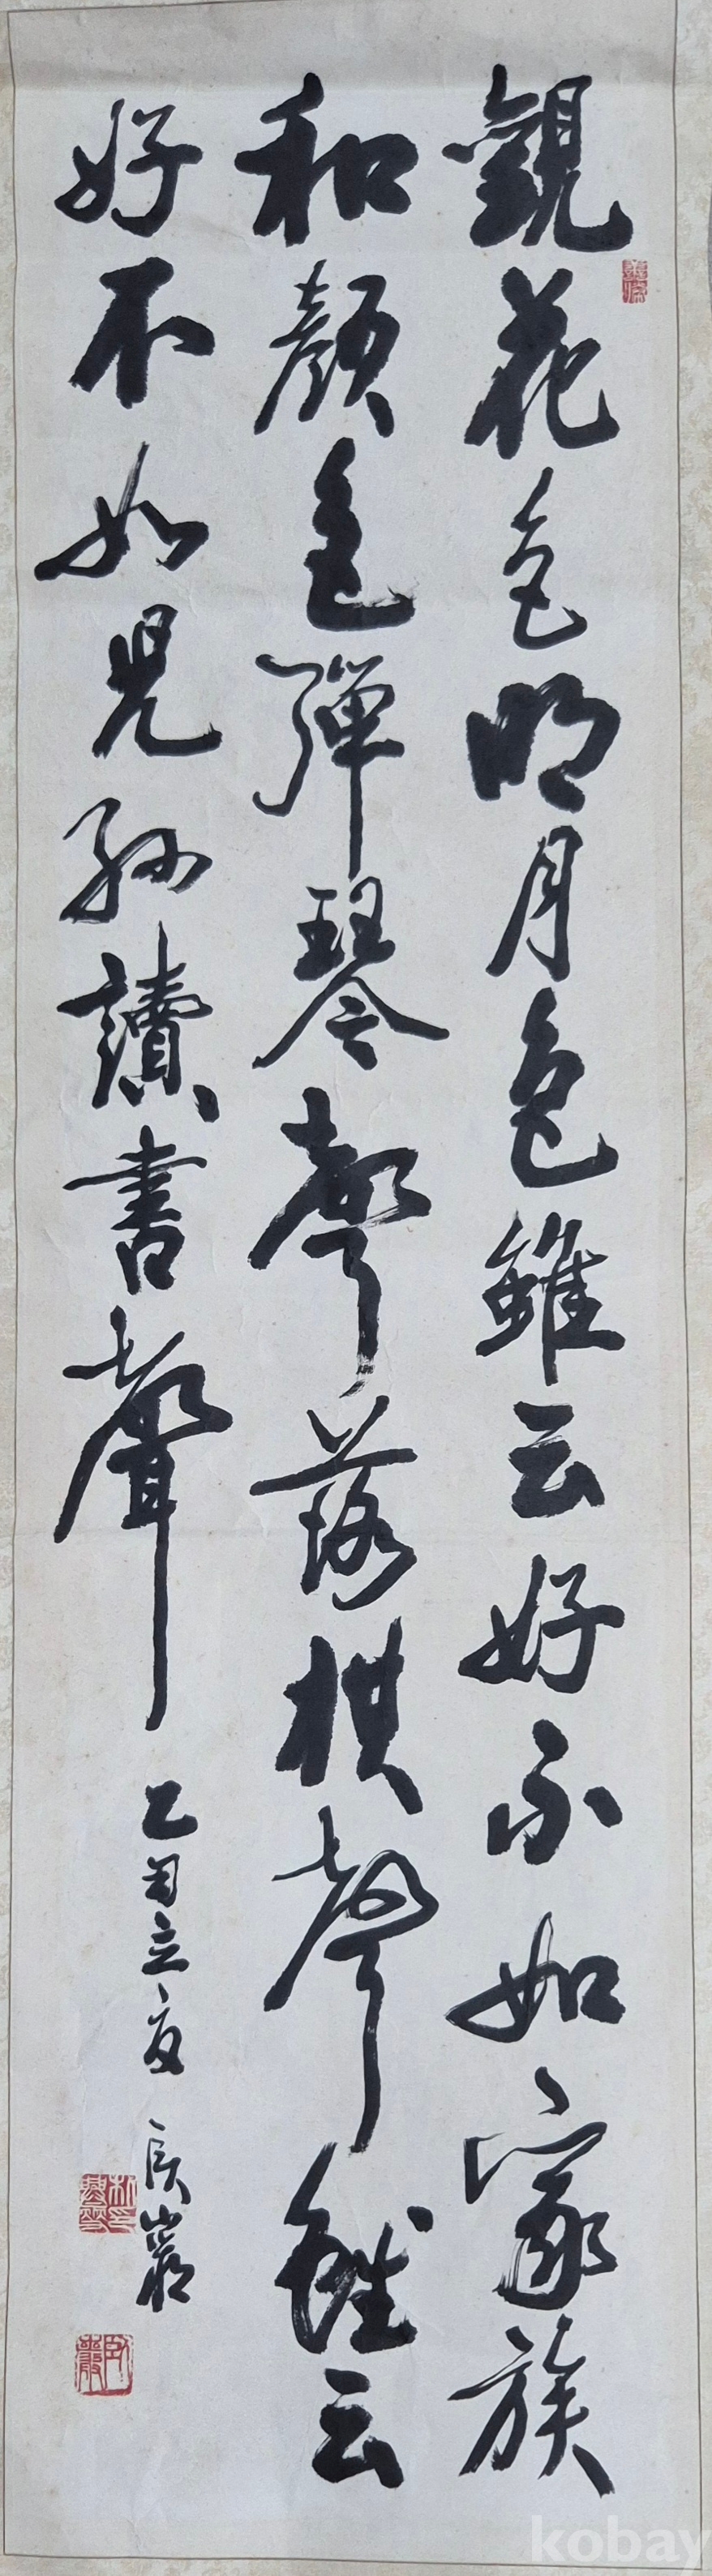 觀花色明月色雖云好不如家族
和顔色彈琴聲落棋聲雖云
好不如兒孫讀書聲
乙酉立夏 臥巖
kobay